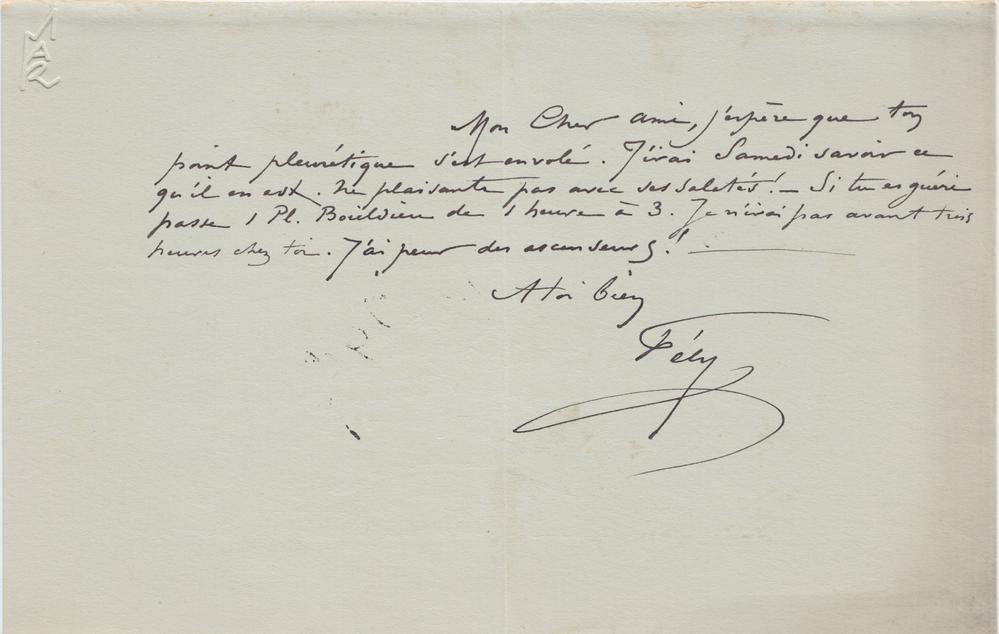 Mon Cher ami, j'espère que ton
point pleurétique s'est envolé. J'irai Samedi savoir ce
qu'il en est. Ne plaisante pas avec ses saletés! – Si tu es guéri
passe 1 Pl. Boieldieu de 1 heure à 3. Je n'irai pas avant trois
heures chez toi. J'ai peur des ascenseurs!
A toi bien
Fély